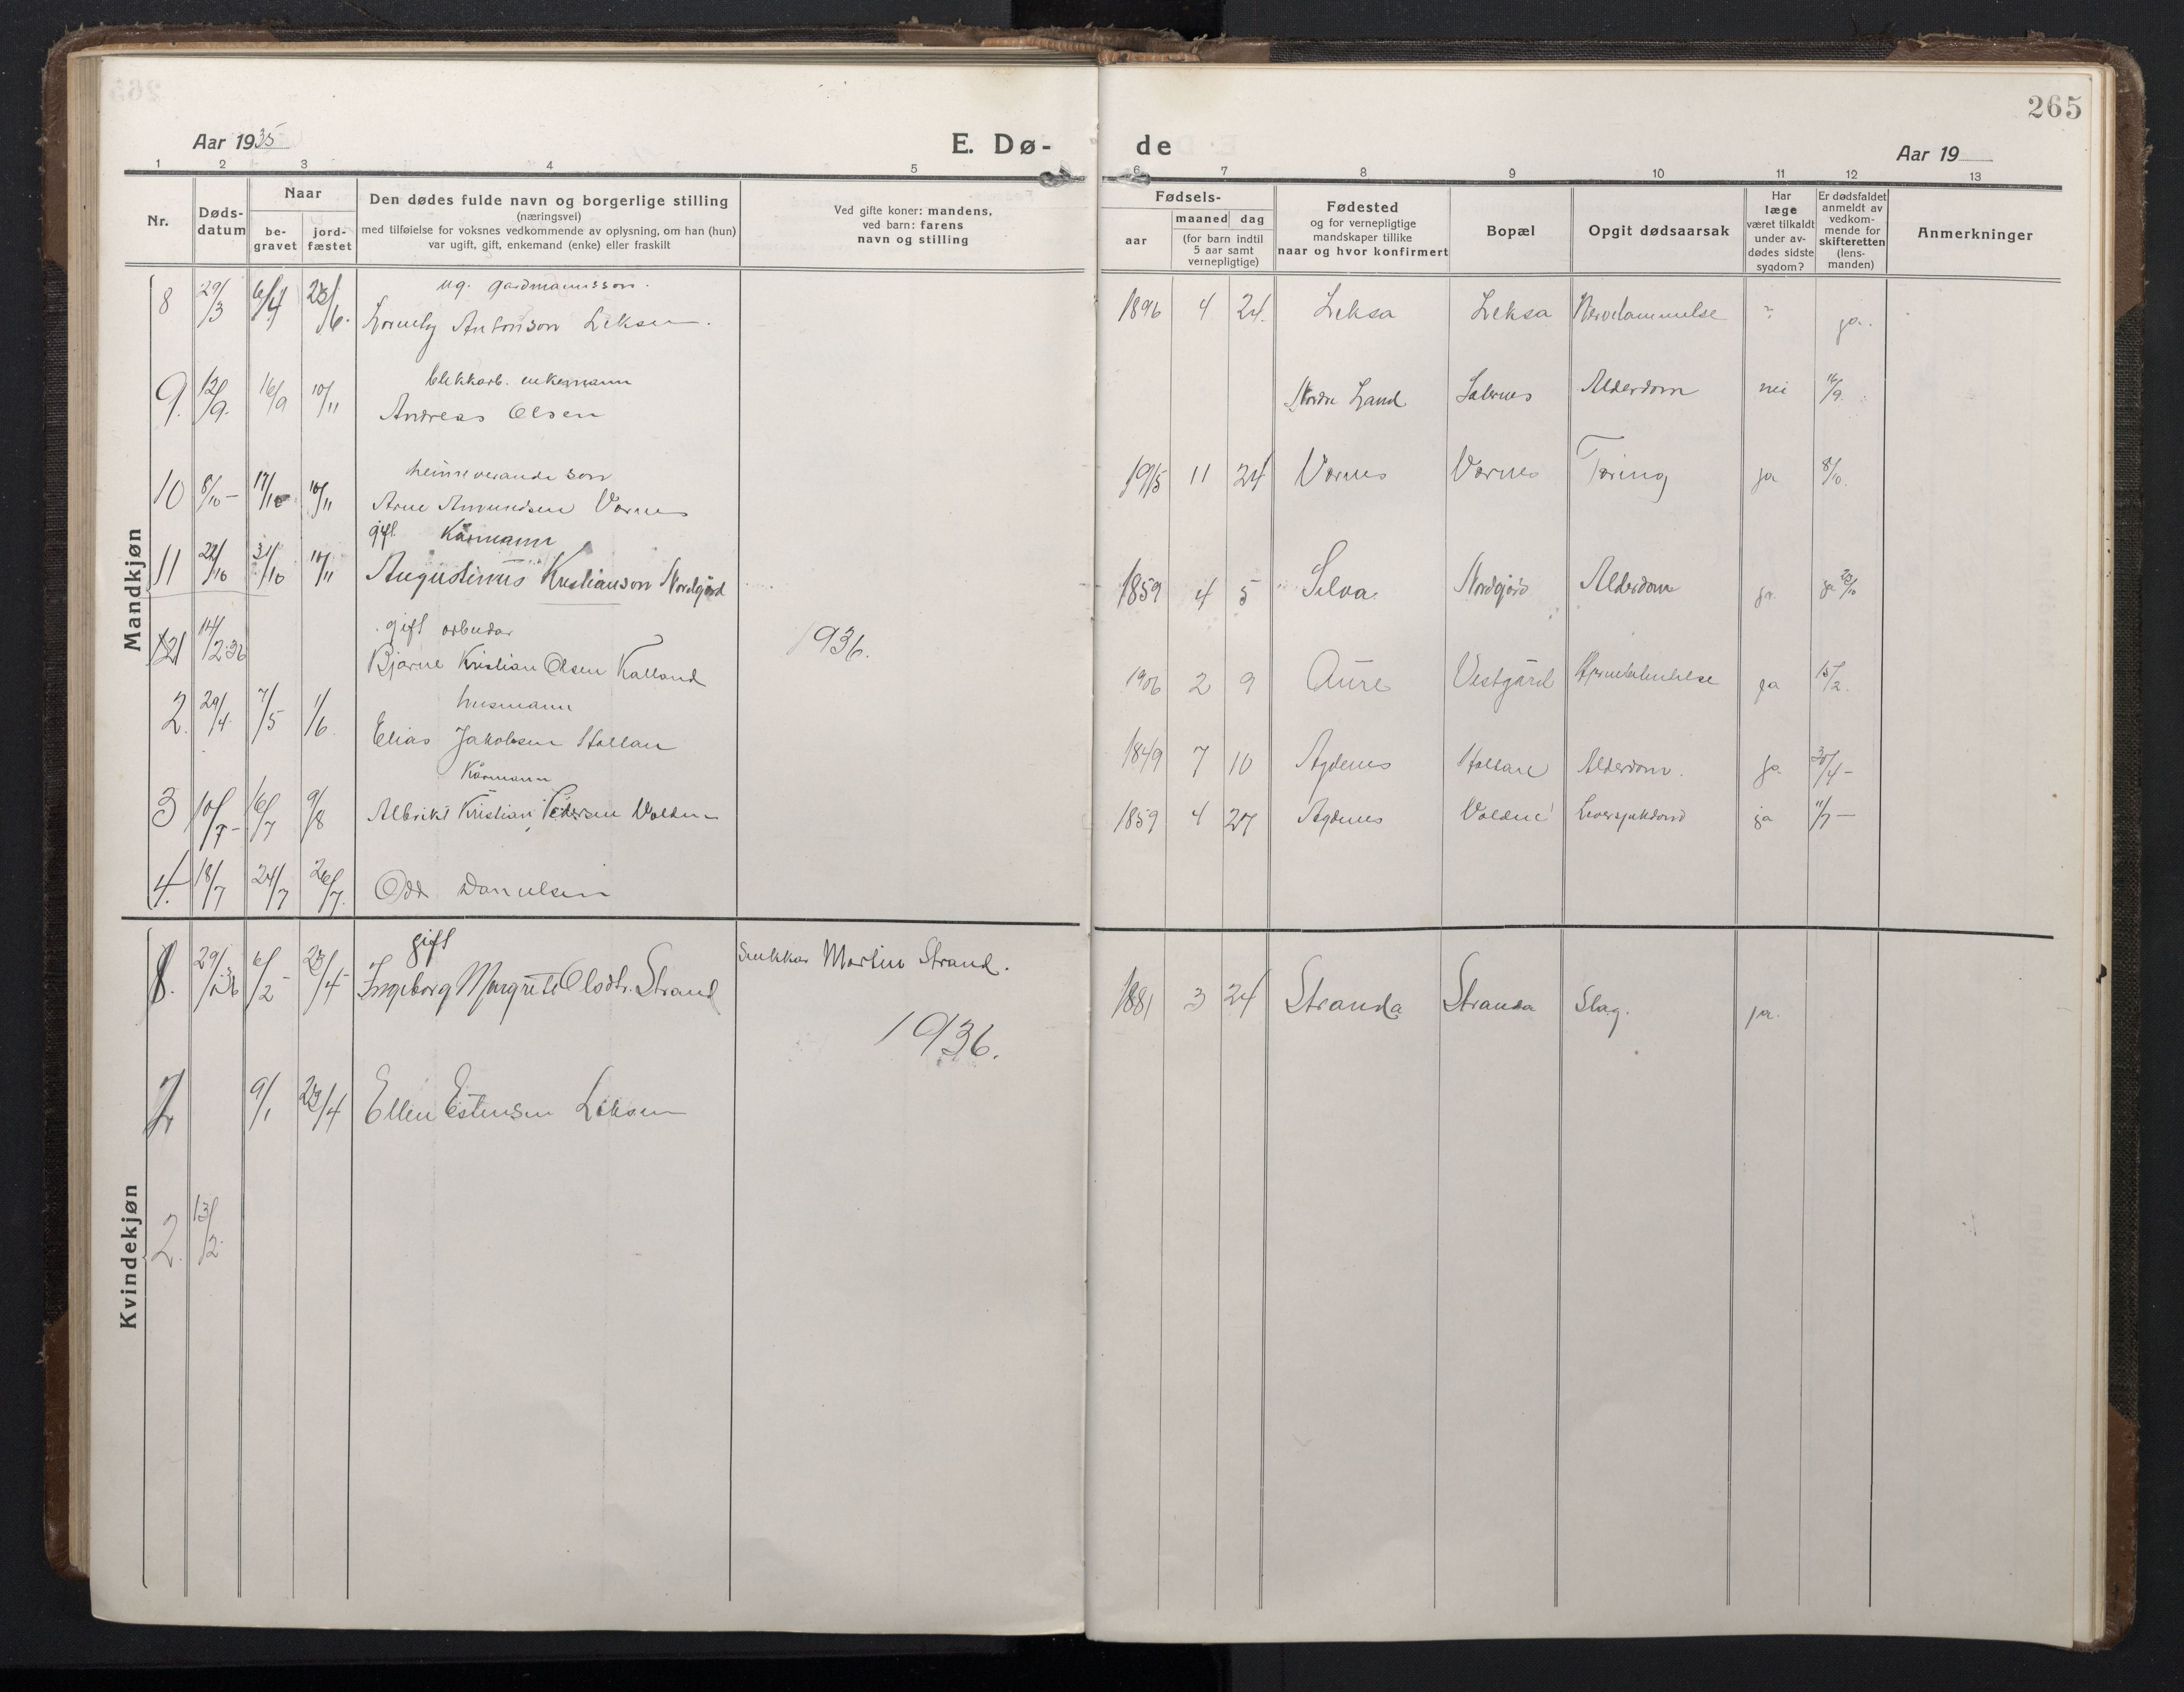 265
Aar 1935
E. Dø-
de
Aar 19
1 2 3 4 5 6 7 8 9 10 11 12 13
Nr.
Døds-
datum
Naar
be-
gravet
jord-
fæstet
Den dødes fulde navn og borgerlige stilling
(næringsvei)
med tilføielse for voksnes vedkommende av oplysning, om han (hun)
var ugift, gift, enkemand (enke) eller fraskilt
Ved gifte koner: mandens,
ved barn: farens
navn og stilling
Fødsels-
aar
maaned dag
(for barn indtil
5 aar samt
vernepligtige)
Fødested
og for vernepligtige
mandskaper tillike
naar og hvor konfirmert
Bopæl
Opgit dødsaarsak
Har
læge
været tilkaldt
under av-
dødes sidste
sygdom?
Er dødsfaldet
anmeldt av
vedkom-
mende for
skifteretten
(lens-
manden)
Anmerkninger
Mandkjøn
ug. gardmannsson.
8 29/3 6/4 23/6. Antonson Leksen. 1896 4 24. Leksa Leksa ? ja.
enkemann
9. 12/9. 16/9 10/11 Andreas Olsen Nordre Land Alderdom nei 16/9.
heimeverande son
10 8/10 17/10 10/11 Arne Amundsen Vernes 1915 11 24 Vernes Vernes Tæring ja 8/10.
gift Kårmann
11 22/10 31/10 10/11 Augustinus Kristianson Nordgård 1859 4 5 Selva Nordgård Alderdom ja ja 23/10
gift arbeidar
1936.
14/2.36 Bjarne Kristian Olsen Kalland 1906 2 9 Aure Vestgård ja 15/2.
husmann
2. 29/4. 7/5 1/6 Elias Jakobsen Stallan 1849 7 10 Agdenes Stallan Alderdom. ja 30/4
Kårmann
3 10/7 16/7 9/8 Albrikt Kristian Pedersen Volden 1859 4 27 Agdenes Volden Leversjukdom ja 11/7
4. 18/7 24/7 26/7. Odd Danielsen
Kvindekjøn
gift
1. 29/1 36 6/2 23/4 Ingeborg Margrete Olsdtr. Strand Snikkar Martin Strand. 1881 3 24 Stranda Stranda Slag. ja.
1936.
9/1 23/4 Ellen Estensen Leksen
2. 13/2.